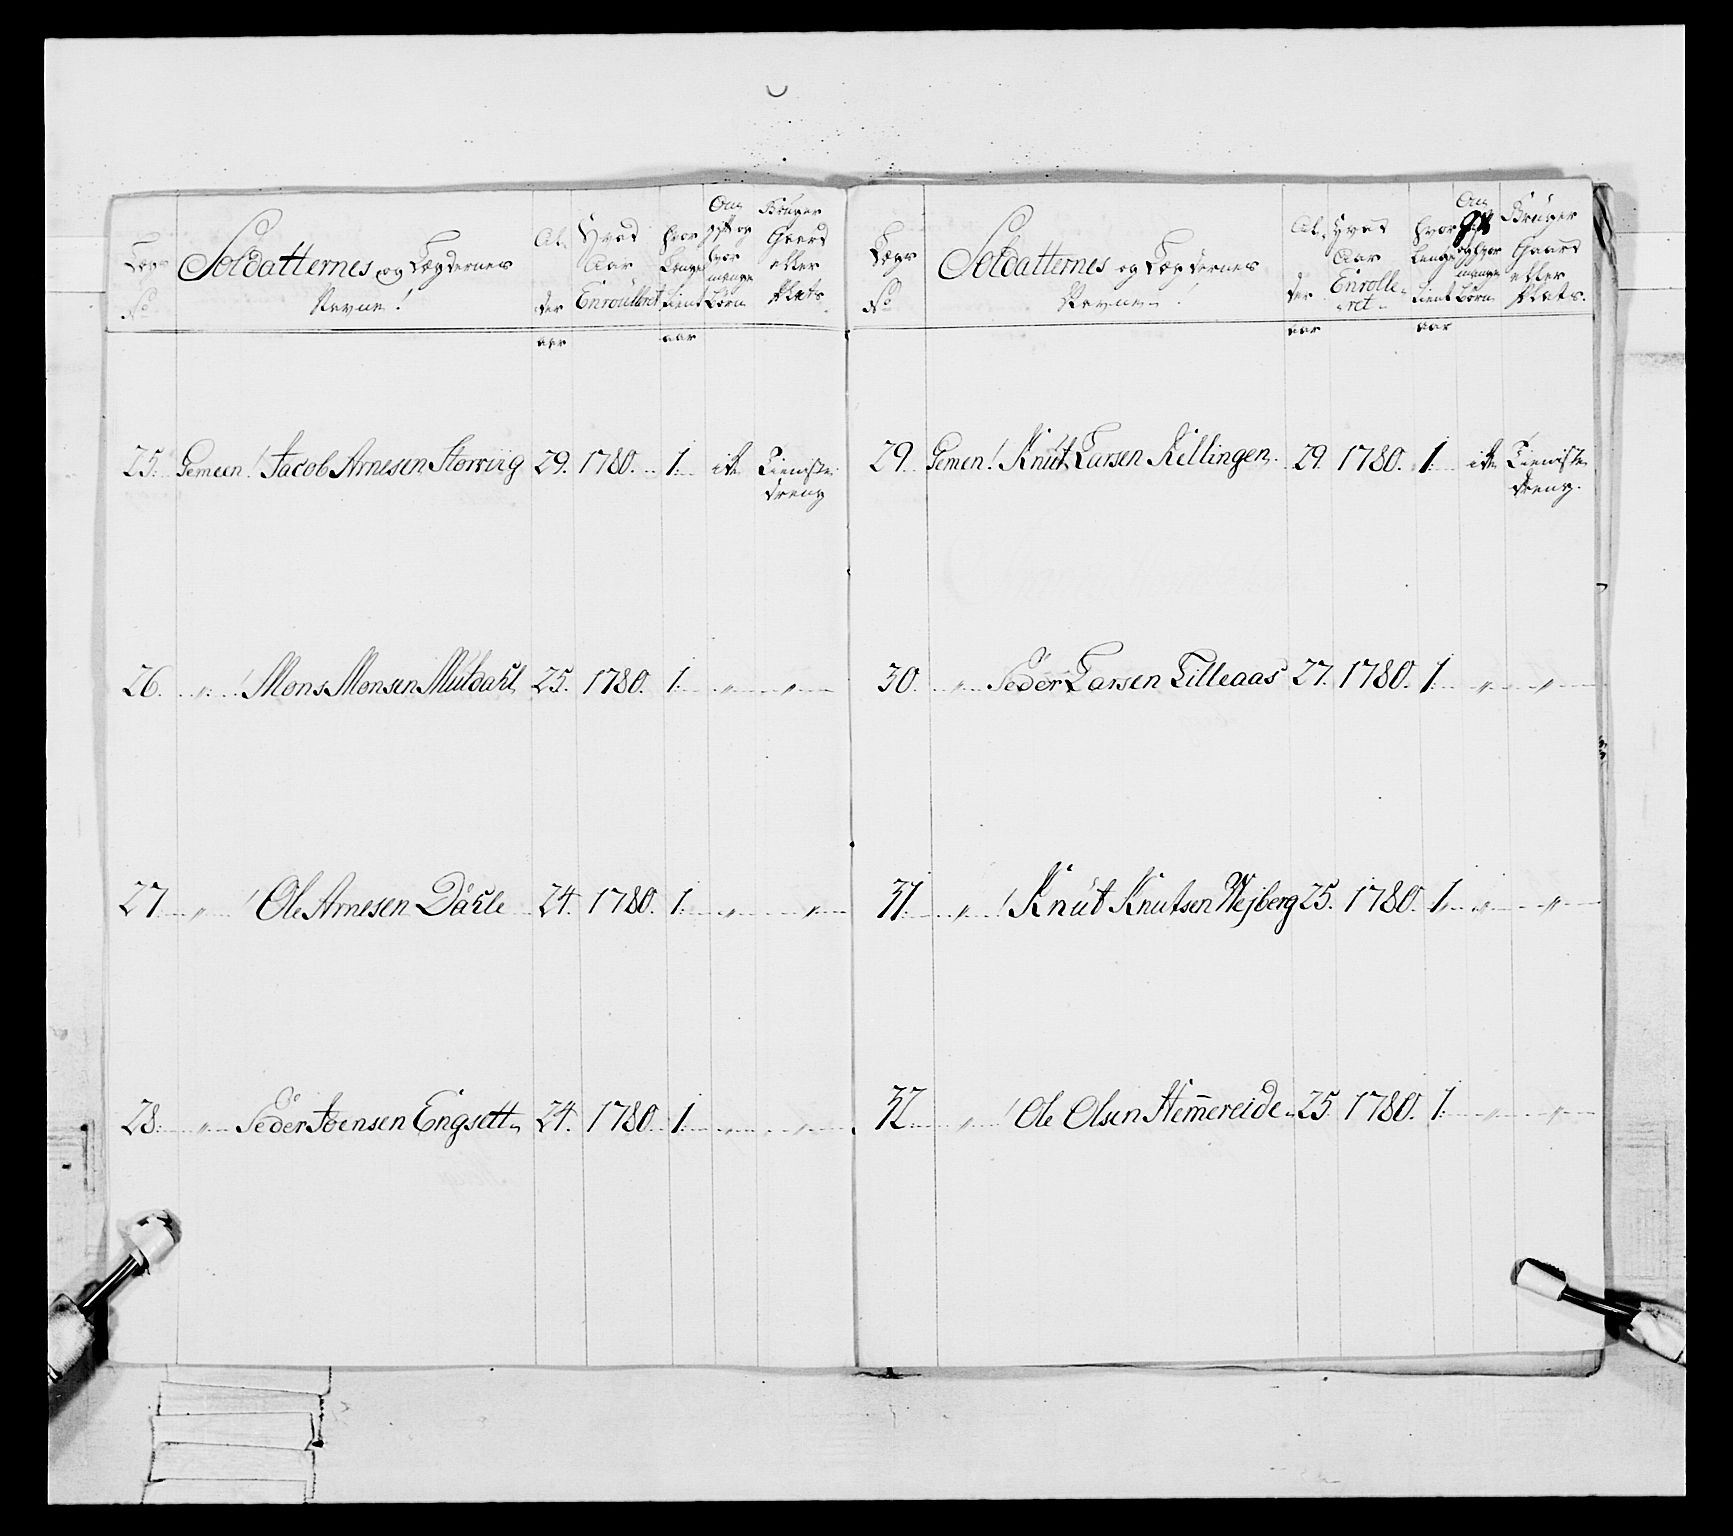 Lægs No
Soldatternes og Lægdernes Navne!
Al der aar
Hvad Aar Enroullert
hvor Lenge tient aar
Om gift og hvor mange Børn
Bruger Gaard eller Plats.
25. Gemeen! Jacob Arnesen Storvig 29. 1780. 1. ikke Tieniste dreng
26. " ! Mons Monsen Muldahl 25. 1780. 1. " "
27. " ! Ole Arnesen Dahle 24. 1780. 1. " "
28. " Peder Joensen Engsett 24. 1780. 1. " "
Lægs No
Soldatternes og Lægdernes Navne!
Al der aar
Hvad Aar Enrolleret
hvor Lenge tient aar
Om gift og hvor mange Børn
Bruger Gaard eller Plats.
29. Gemen! Knut Larsen Killingen. 29. 1780. 1. ikke Tieniste dreng.
30. " Peder Larsen Lilleaas 27. 1780. 1. " "
31. " ! Knut Knutsen Wejberg 25. 1780. 1. " "
32. " ! Ole Olsen Hem̅ereide 25. 1780. 1. " "